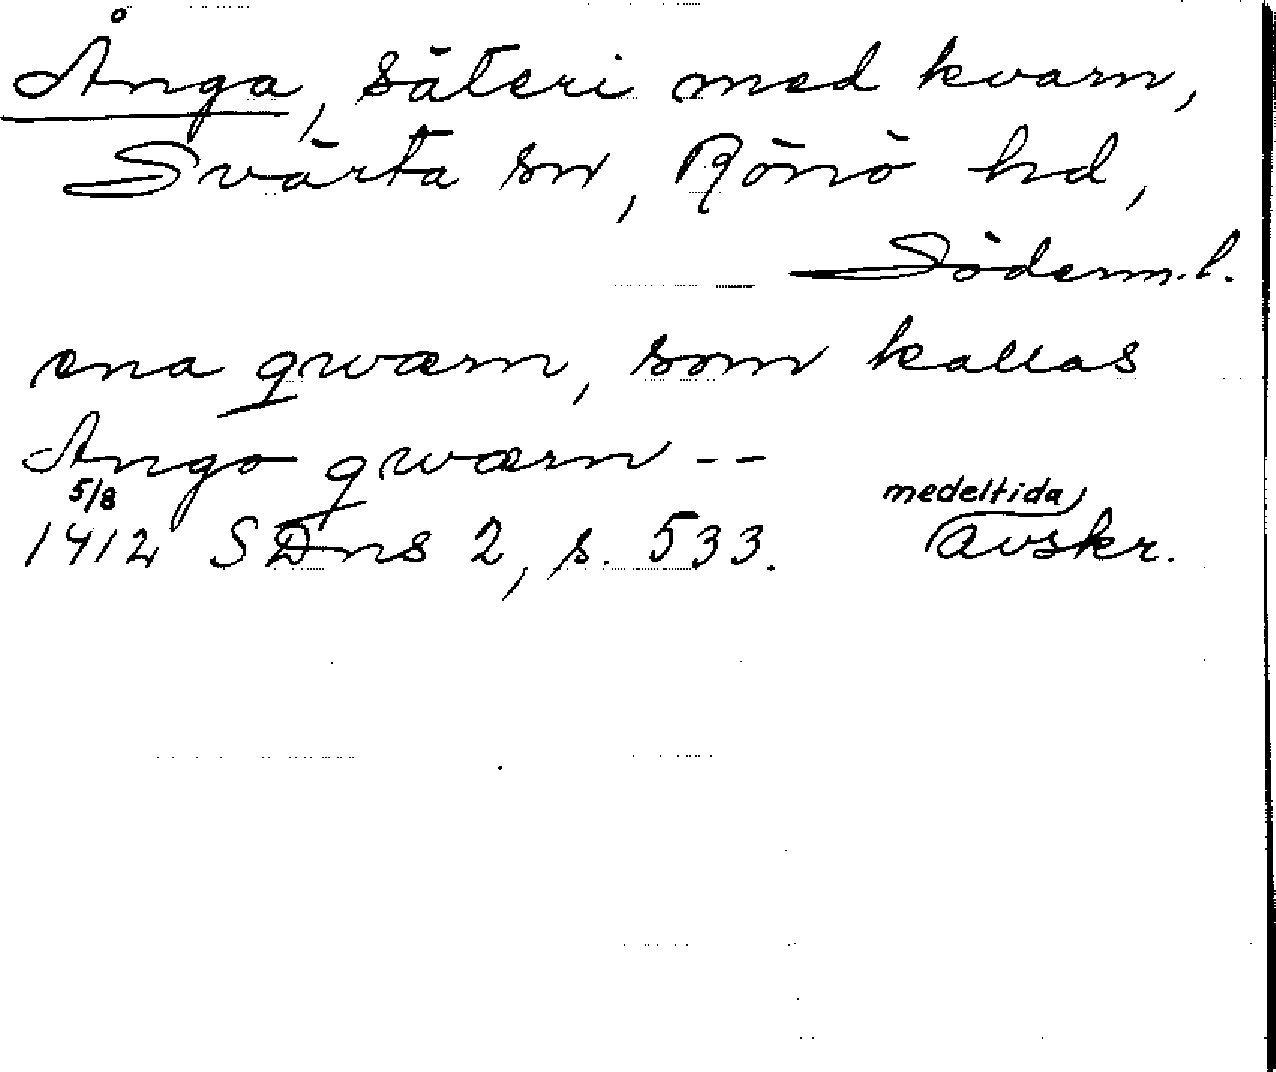 Ånga, säteri med kvarn,
Svärta sn, Rönö hd,
Söderm.l.
ena qwærn, som kallas
Ango qwærn --
5/8
1412 SDns 2, s. 533. medeltida avskr.